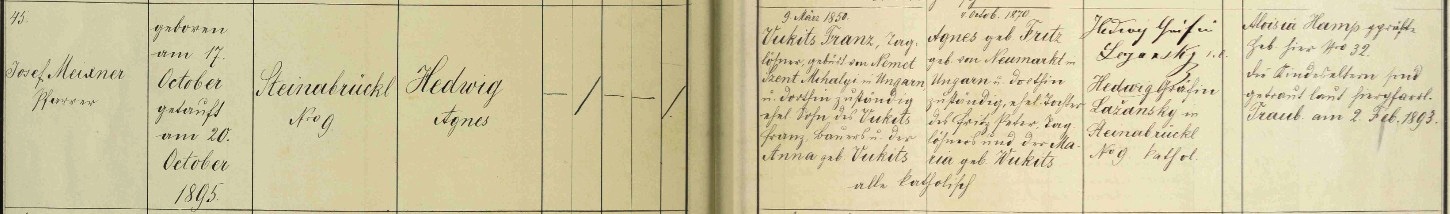 45.
Josef Meixner
Pfarrer
geboren
am 17.
October
getauft
am 20.
October
1895.
Steinabrückl
Nro 9
Hedwig
Agnes
9 März 1850.
Vukits Franz, Tag-
löhner, gebürt. von Német
Szent Mihalye in Ungarn
u. dorthin zuständig
ehel. Sohn des Vukits
Franz, Bauers u. der
Anna geb. Vukits
Octob. 1870
Agnes geb. Fritz
geb. von Neumarkt in
Ungarn u. dorthin
zuständig, ehel. Tochter
des Fritz Peter, Tag
löhners und der Ma-
ria geb. Wukits
alle katholisch
Hedwig Gräfin
Hedwig Gräfin
Lažansky in
Steinabrückl
No 9 kathol.
Aloisia Hamp geprüfte
Heb. hier Nro 32.
Die Kindeseltern sind
getraut laut hierpfarrl.
Traub. am 2. Feb. 1893.